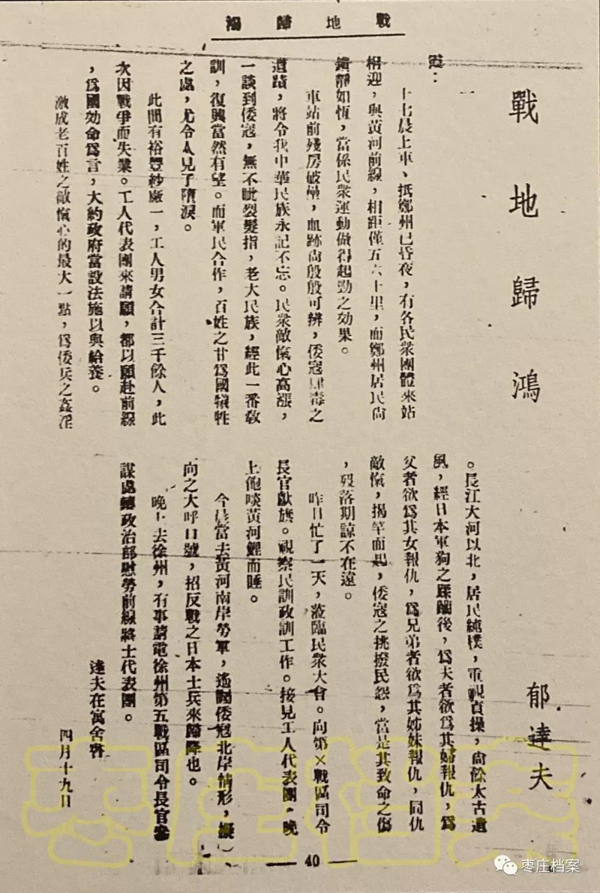 戰地歸鴻
戰地歸鴻
郁達夫
霞：
十七晨上車、抵鄭州已昏夜，有各民衆團體來站
相迎，與黃河前線，相距僅五六十里，而鄭州居民尙
鎮靜如恆，當係民衆運動做得起勁之効果。
車站前殘房破壘，血跡尙殷殷可辨，倭寇肆毒之
遺蹟，將令我中華民族永記不忘。民衆敵愾心高漲，
一談到倭寇，無不眦裂髮指，老大民族，經此一番敎
訓，復興當然有望。而軍民合作，百姓之甘爲國犠牲
之處，尤令人見了墮淚。
此間有裕豐紗廠一，工人男女合計三千餘人，此
次因戰爭而失業。工人代表團來請願，都以願赴前線
，爲國効命爲言，大約政府當設法施以與給養。
激成老百姓之敵愾心的最大一點，爲倭兵之姦淫
。長江大河以北，居民純樸，重視貞操，尙餘太古遺
風，經日本軍狗之蹂躪後，爲夫者欲爲其婦報仇，爲
父者欲爲其女報仇，爲兄弟者欲爲其姊妹報仇，同仇
敵愾，揭竿而起，倭寇之挑撥民怨，當是其致命之傷
，歿落期諒不在遠。
昨日忙了一天，蒞臨民衆大會。向第×戰區司令
長官獻旗。視察民訓政訓工作。接見工人代表團，晚
上飽啖黃河鯉而睡。
今晨當去黃河南岸勞軍，遙觀倭寇北岸情形，擬
向之大呼口號，招反戰之日本士兵來歸降也。
晚上去徐州，有事請電徐州第五戰區司令長官參
謀處轉政治部慰勞前線將士代表團。
達夫在寓舍書
四月十九日
40
枣庄档案
枣庄档案